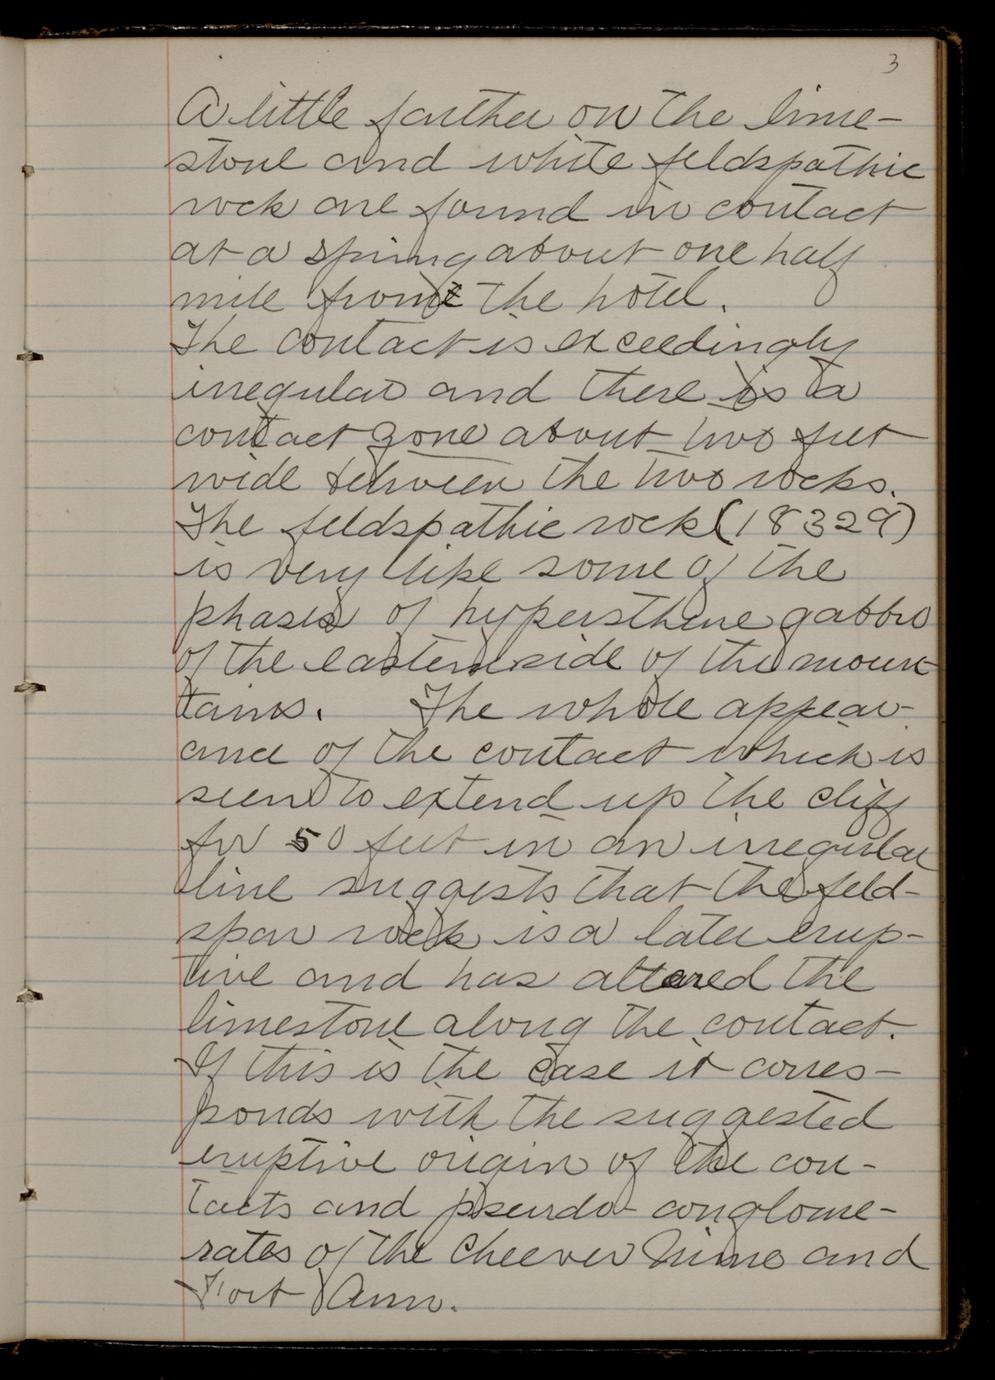 3
A little farther on the lime-
stone and white feldspathic
rock are found in contact
at a spring about one half
mile from the hotel.
The contact is exceedingly
irregular and there is a
contact zone about two feet
wide between the two rocks.
The feldspathic rock (18329)
is very like some of the
phases of hypersthene gabbro
of the eastern side of the moun-
tains. The whole appear-
ance of the contact which is
seen to extend up the cliff
for 50 feet in an irregular
line suggests that the feld-
spar rock is a later erup-
tive and has altered the
limestone along the contact.
If this is the case it corres-
ponds with the suggested
eruptive origin of the con-
tacts and pseudo-conglome-
rates of the Cheever Mine and
Fort Ann.